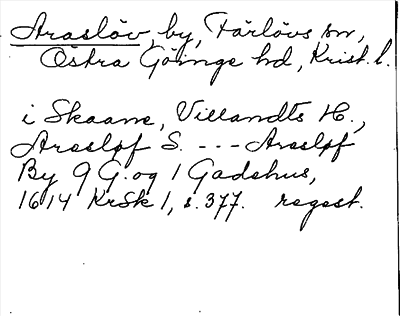 Araslöv, by, Färlövs sn,
Östra Göinge hd, Krist. l.
i Skaane, Villandts H.,
Arasløf S. --- Arasløf
By 9 G. og 1 Gadehus,
1614 KrSk 1, s. 377. regest.